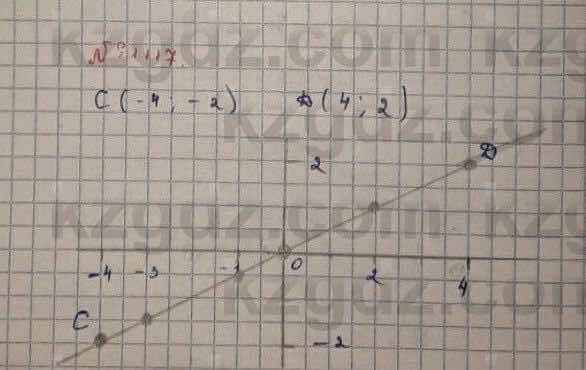 kzgdz.com kzgdz
№ 1117.
C (-4; -2) D (4; 2)
kzgdz.com
2 D
kzgdz.com kzgdz
-4 -3 -1 0 2 4
kzgdz.com
C
-2